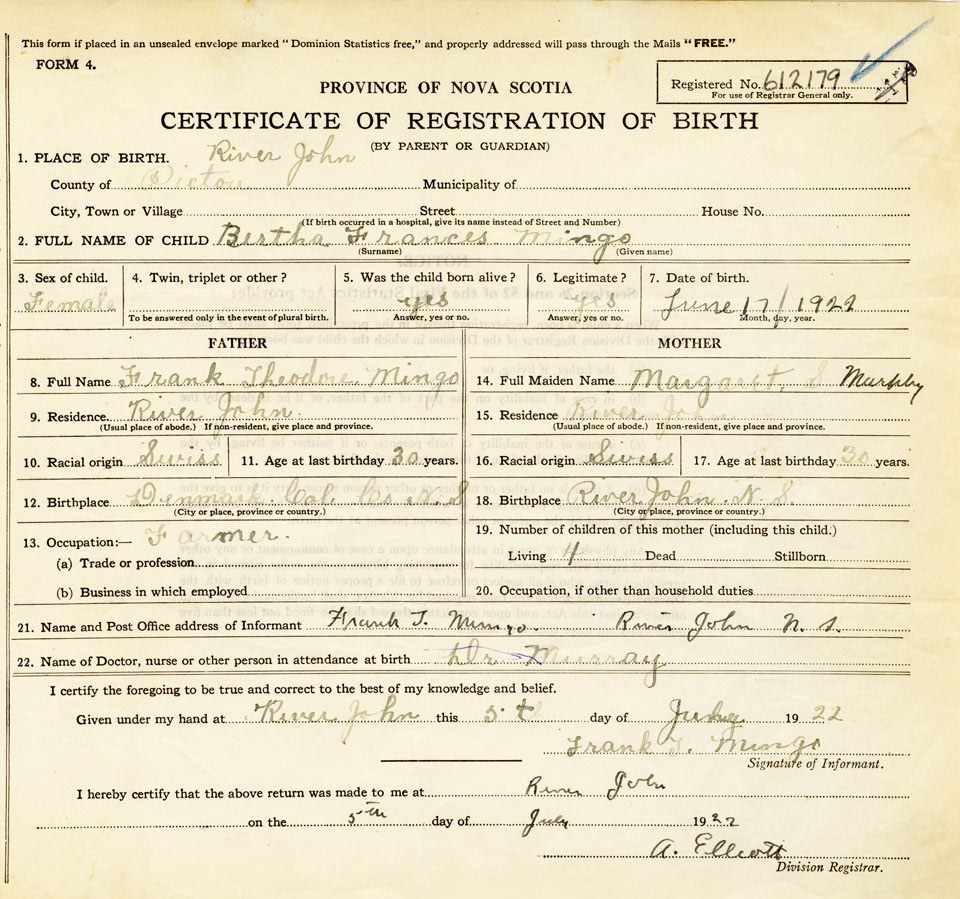 This form if placed in an unsealed envelope marked "Dominion Statistics free," and properly addressed will pass through the Mails "FREE."
FORM 4.
Registered No. 612179
For use of Registrar General only.
PROVINCE OF NOVA SCOTIA
CERTIFICATE OF REGISTRATION OF BIRTH
(BY PARENT OR GUARDIAN)
1. PLACE OF BIRTH. River John
County of Pictou Municipality of
City, Town or Village Street House No.
(If birth occurred in a hospital, give its name instead of Street and Number)
2. FULL NAME OF CHILD Bertha Frances Mingo
(Surname) (Given name)
3. Sex of child. 4. Twin, triplet or other? 5. Was the child born alive? 6. Legitimate? 7. Date of birth.
Female yes yes June 17/1922
To be answered only in the event of plural birth. Answer, yes or no. Answer, yes or no. Month, day, year.
FATHER MOTHER
8. Full Name Frank Theodore Mingo 14. Full Maiden Name Margaret S Murphy
9. Residence River John. 15. Residence River John
(Usual place of abode.) If non-resident, give place and province. (Usual place of abode.) If non-resident, give place and province.
10. Racial origin Swiss 11. Age at last birthday 30 years. 16. Racial origin Swiss 17. Age at last birthday 30 years.
12. Birthplace Denmark Col. Co. N. S 18. Birthplace River John N. S.
(City or place, province or country.) (City or place, province or country.)
13. Occupation:— Farmer. 19. Number of children of this mother (including this child.)
(a) Trade or profession Living 4 Dead Stillborn
(b) Business in which employed 20. Occupation, if other than household duties
21. Name and Post Office address of Informant Frank T. Mingo. River John N. S.
22. Name of Doctor, nurse or other person in attendance at birth Dr Murray
I certify the foregoing to be true and correct to the best of my knowledge and belief.
Given under my hand at River John this 5th day of July 1922
Frank T. Mingo
Signature of Informant.
I hereby certify that the above return was made to me at River John
on the 5th day of July 1922
A. Elliott
Division Registrar.